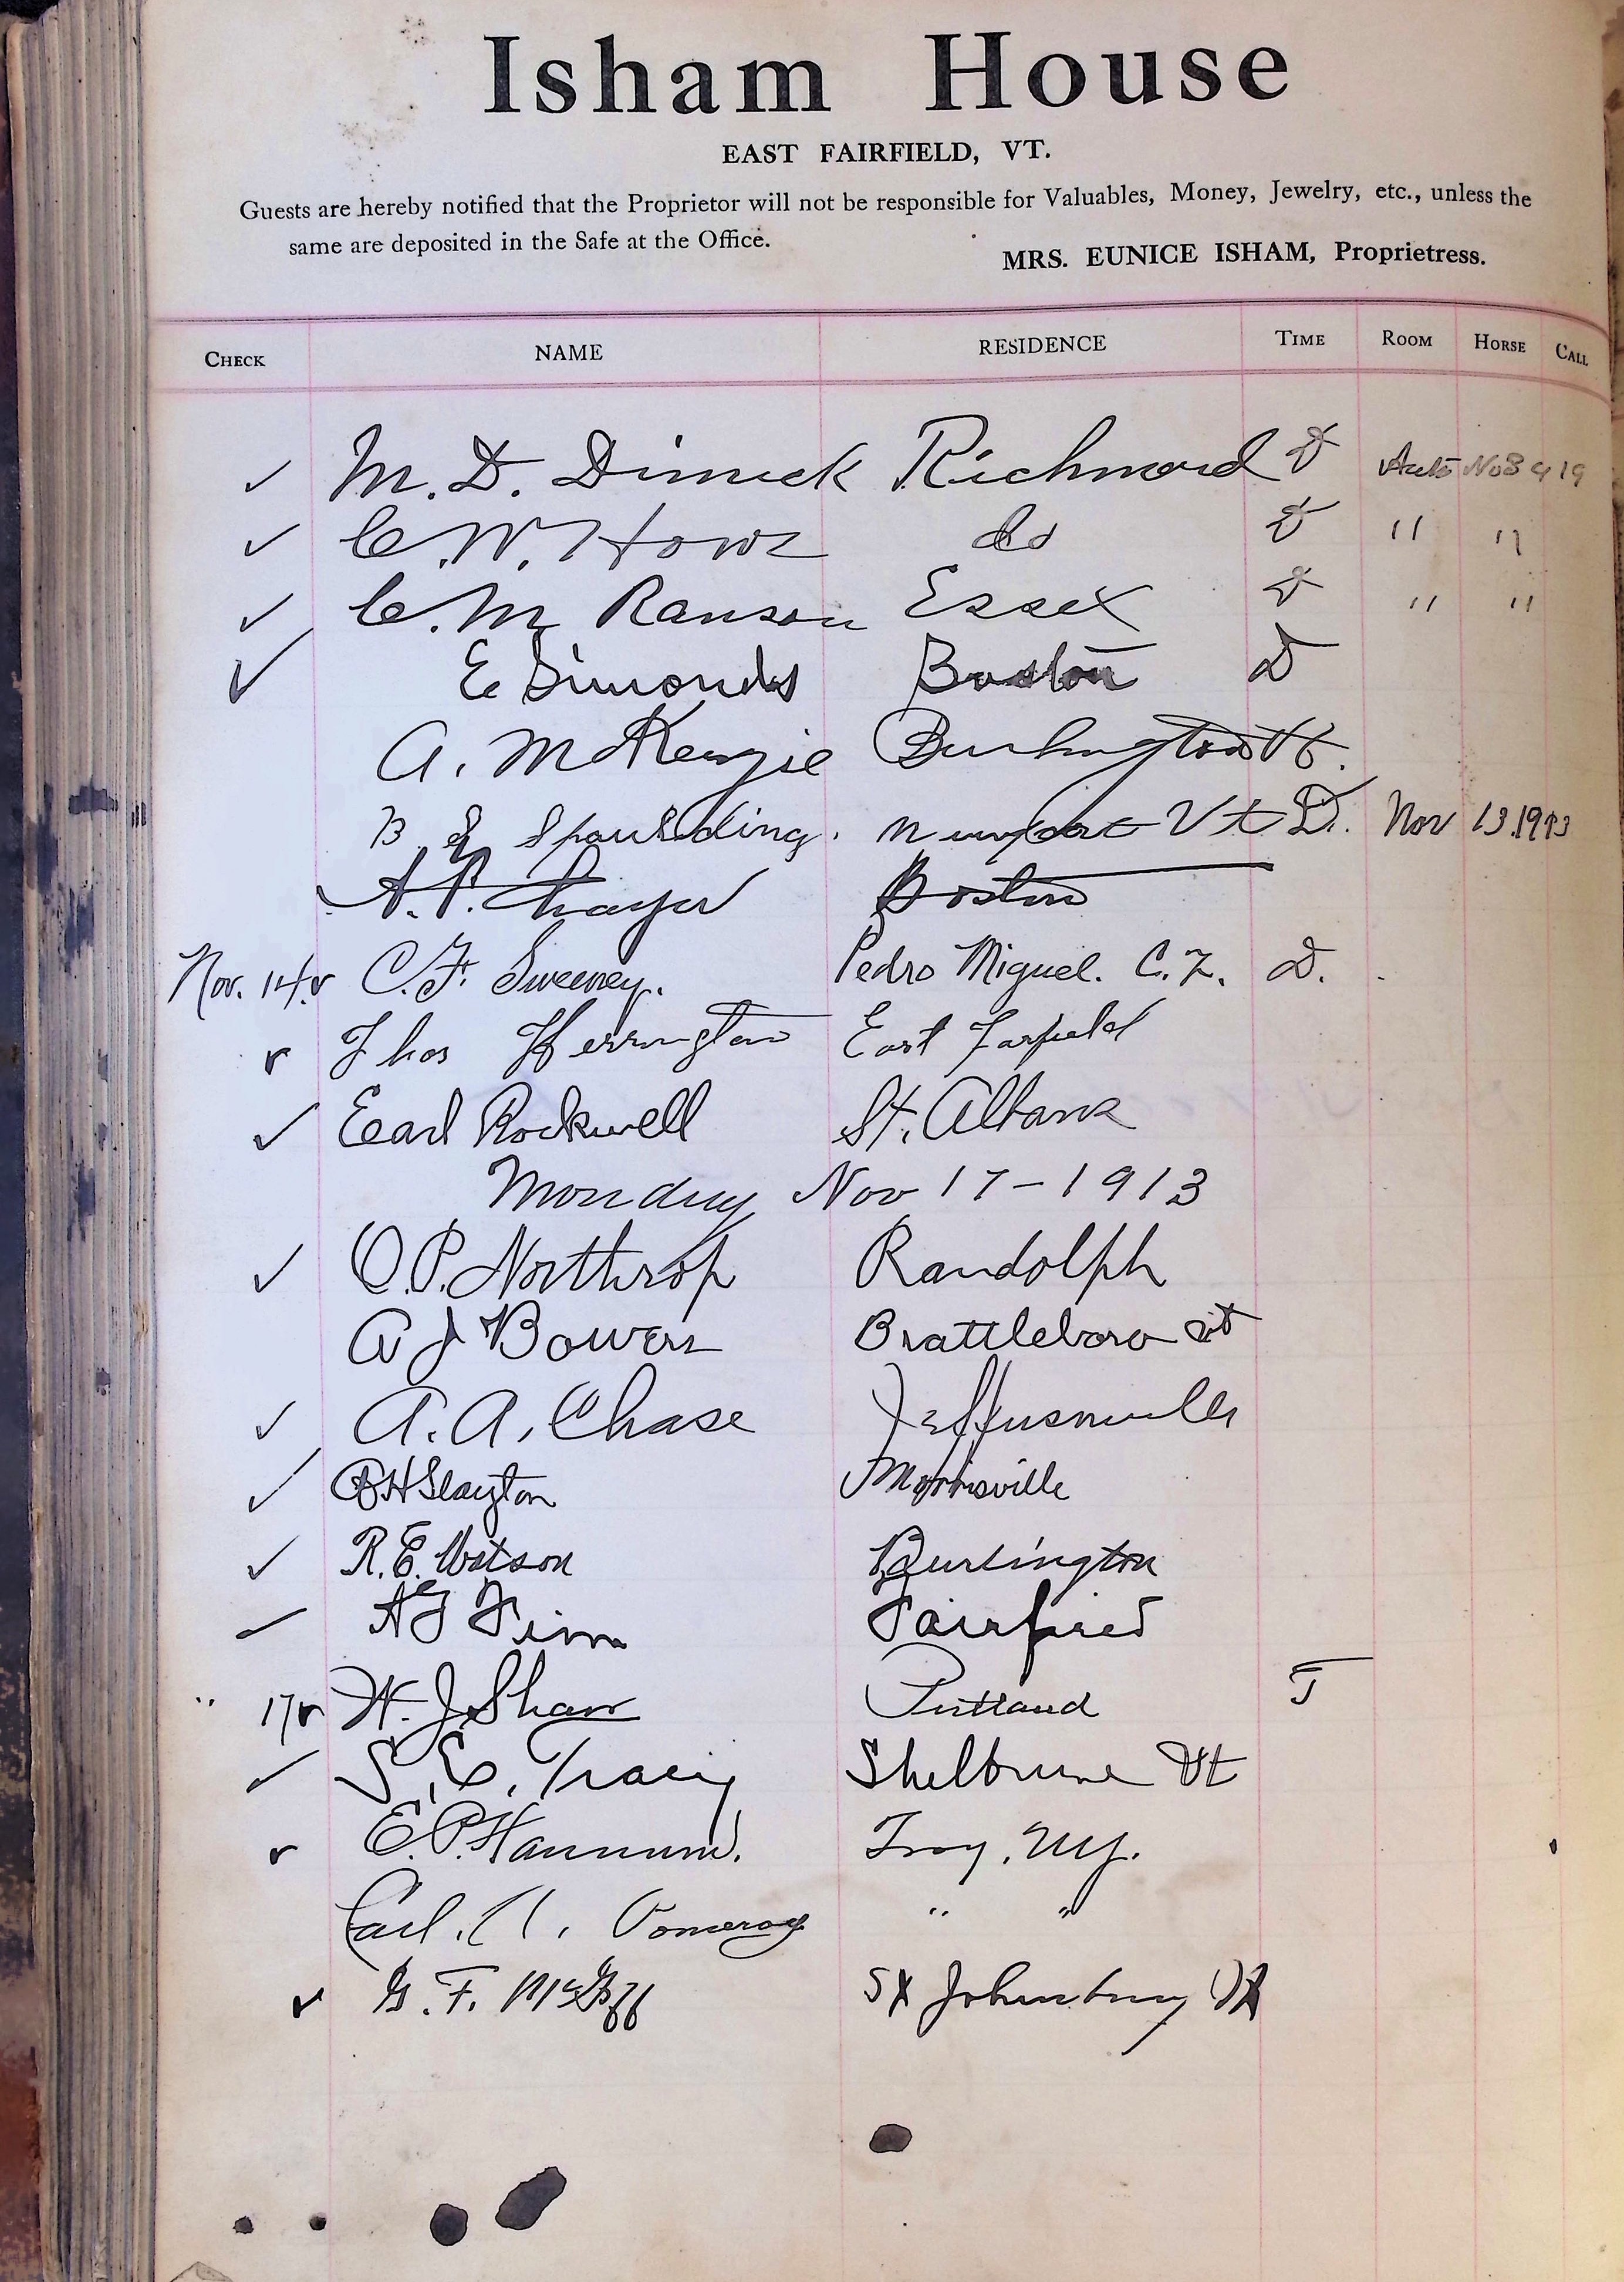 Isham House
EAST FAIRFIELD, VT.
Guests are hereby notified that the Proprietor will not be responsible for Valuables, Money, Jewelry, etc., unless the
same are deposited in the Safe at the Office.
MRS. EUNICE ISHAM, Proprietress.
CHECK NAME RESIDENCE TIME ROOM HORSE CALL
✓ M. D. Dimick Richmond D Auto No 3919
✓ C. W. Howe do D " "
✓ C. M Ransom Essex D " "
✓ E Simonds Boston D
A. McKenzie Burlington Vt.
B E Spaulding. Newport Vt D. Nov 13.1913
A. P. Thayer Boston
Nov. 14. ✓ C. F. Sweeney. Pedro Miguel. C. Z. D.
✓ Thos Herrington East Farfield
✓ Earl Rockwell St. Albans
Monday Nov 17-1913
✓ O. P. Northrop Randolph
A J Bowen Brattleboro
✓ A. A. Chase Jeffersonville
✓ H Slayton Morrisville
✓ R. E. Watson Burlington
✓ Fairfied
" 17 ✓ W. J. Shaw Rutland T
✓ S. E. Tracy Shelburne Vt
✓ E. P. Hannum. Troy, N.Y.
Carl. Pomeroy " "
✓ G. F. St Johnsbury Vt